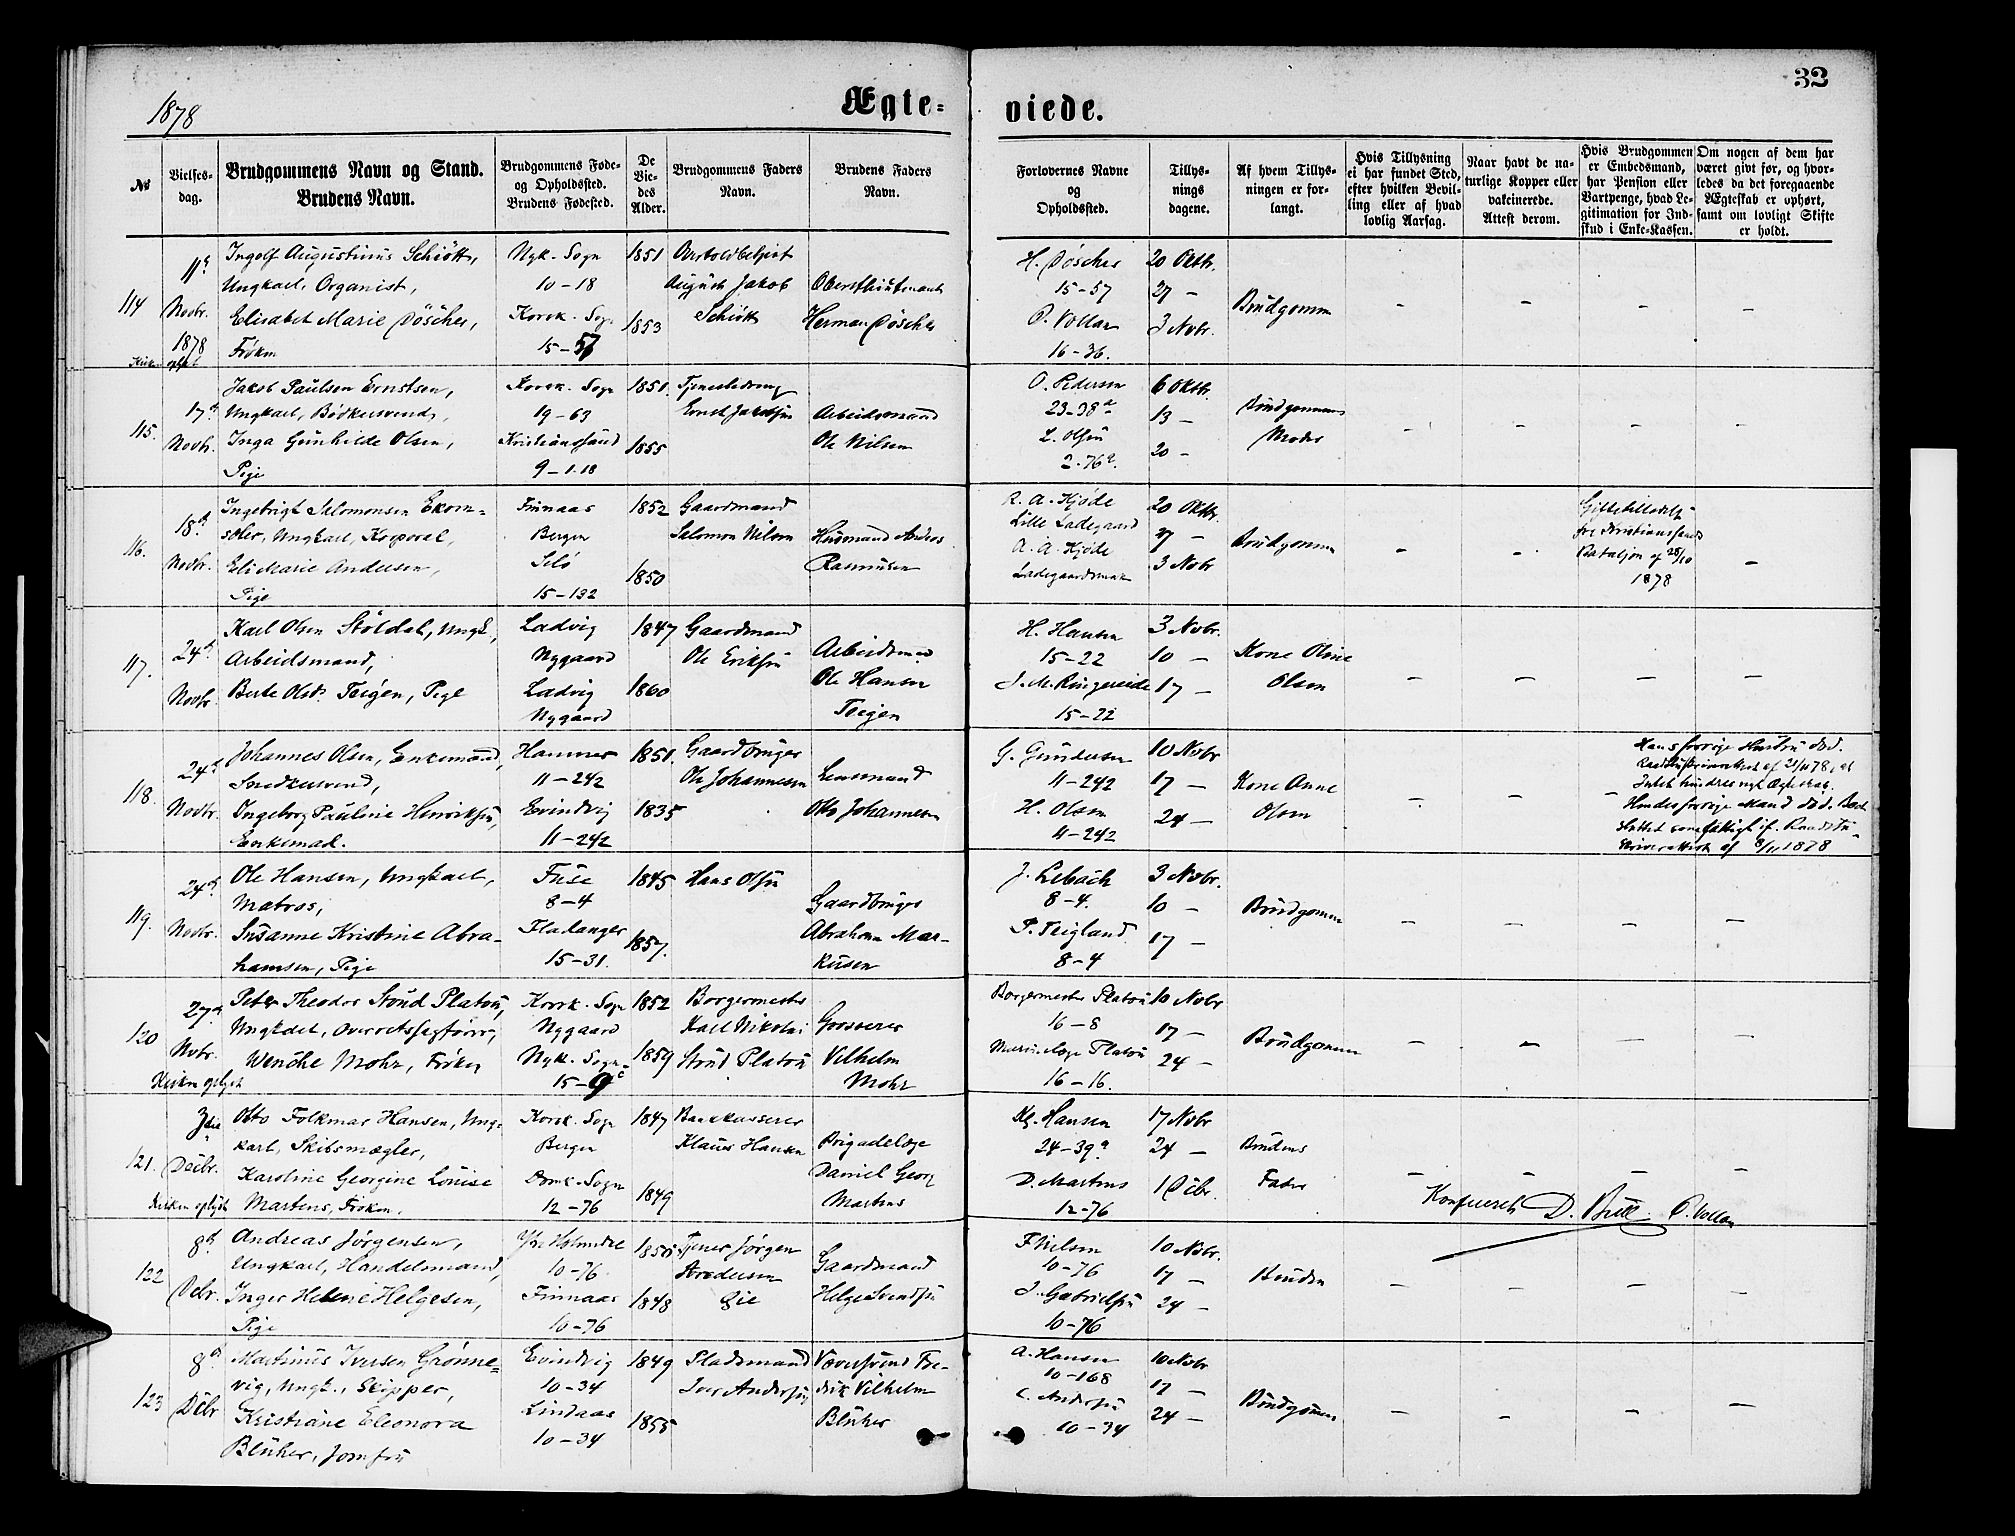 32
1878
Ægte-
viede.
№
Vielses-
dag.
Brudgommens Navn og Stand.
Brudens Navn.
Brudgommens Føde-
og Opholdssted.
Brudens Fødested.
De
Vie-
des
Alder.
Brudgommens Faders
Navn.
Brudens Faders
Navn.
Forlovernes Navne
og
Opholdssted.
Tillys-
nings
dagene.
Af hvem Tillys-
ningen er for-
langt.
Hvis Tillysning
ei har fundet Sted,
efter hvilken Bevil-
ling eller af hvad
lovlig Aarsag.
Naar havt de na-
turlige Kopper eller
vakcinerede.
Attest derom.
Hvis Brudgommen
er Embedsmand,
har Pension eller
Vartpenge, hvad Le-
gitimation for Ind-
skud i Enke-Kassen.
Om nogen af dem har
været givt før, og hvor-
ledes da det foregaaende
Ægteskab er ophørt,
samt om lovligt Skifte
er holdt.
114
11te
Novbr.
1878
Ingolf Augustinus Schiøtt,
Ungkarl, Organist,
Elisabet Marie Døscher,
Frøken
Nyk. Sogn
10-18
Korsk. Sogn
15-57
1851
1853
August Jakob
Schiøtt
Oberstløitenant
Herman Døscher
H. Døscher
15-57
O. Vollan
16-36.
20 Oktbr.
27 -
3 Nobr.
Brudgomm
115.
17de
Novbr.
Jakob Paulsen Ernstsen,
Ungkarl, Bødkersvend,
Inga Gunhilde Olsen,
Pige
Korsk. Sogn
19-63
Kristianssund
9-1.18
1851.
1855
Tjenestedreng
Ernst Jakobsen
Arbeidsmand
Ole Nilsen
O. Pedersen
23-38a
L. Olsen
2-76a.
6 Oktbr.
13 -
20 -
Brudgommens
Moder
116.
18de
Novbr.
Ingebrigt Salomonsen Ekorn-
sæter, Ungkarl, Korporal,
Eli Marie Andersen,
Pige
Finnaas
Bergen
Selø
15-132
1852
1850
Gaardmand
Salomon Nilsen
Husmand Andres
Rasmusen
R. A. Hjøde
Lille Ladegaard
A. A. Hjøde
20 Oktbr.
27 -
3 Nobr
Brudgomm
Giftetilladelse
fra Kristianssands
Bataljon af 28/10
1878
117.
24de
Novbr.
Karl Olsen Støldal, Ungk.,
Arbeidsmand,
Berte Olsdr. Teigen, Pige
Ladvig
Nygaard
Ladvig
Nygaard
1847
1860
Gaardmand
Ole Eriksen
Arbeidsmand
Ole Hansen
Teigen
H. Hansen
15-22
J. M. Ringereide
15-22
3 Nobr.
10 -
17 -
Kone Oline
Olsen
118.
24de
Novbr.
Johannes Olsen, Enkemand,
Snedkersvend,
Ingeborg Pauline Henriksen,
Enkemad.
Hammer
11-242
Evindvig
11-242
1851.
1835
Gaardbruger
Ole Johannesen
Lensmand
Otto Johannesen
G. Gundersen
11-242
H. Olsen
11-242
10 Nobr
17 -
24 -
Kone Anne
Olsen
Hans forrige Hustru død.
Intet hindrer nyt Ægteskab.
Hendes forrige Mand død. Boet
af 8/11 1878
119.
24de
Novbr.
Ole Hansen, Ungkarl,
Matros,
Susanne Kristine Abra-
hamsen, Pige
Fuse
8-4
Fladanger
15-31.
1845
1857.
Hans Olsen
Gaardbruger
Abraham Mar-
kusen
J. Lebach
8-4.
P. Teigland
8-4
3 Nobr.
10 -
17 -
Brudgomm
120
27de
Nobr.
Peter Theodor Stoud Platou,
Ungkarl, Overretssagfører,
Wencke Mohr, Frøken
Korsk. Sogn
Nygaard
Nyk. Sogn
15-9c
1852
1859
Borgermester
Karl Nikolai
Stoud Platou
Grosserer
Vilhelm
Mohr
Borgermester Platou
16-8
16-16.
10 Nobr
17 -
24 -
Brudgommen
121.
3die
Decbr.
Otto Folkmar Hansen, Ung-
karl, Skibsmægler,
Karoline Georgine Louise
Martens, Frøken.
Korsk. Sogn
Bergen
Domk. Sogn
12-76
1847
1849
Bankkasserer
Klaus Hansen
Brigadelæge
Daniel Georg
Martens
Kl. Hansen
24-39a
D. Martens
12-76
17 Nobr
24 -
1 Decbr.
Brudens
Fader
Konfereret D. Bull O. Vollan
122
8de
Decbr.
Andreas Jørgensen,
Ungkarl, Handelsmand,
Inger Helene Helgesen,
Pige
10-76.
Finnaas
10-76
1848
Tjener Jørgen
Gaardmand
Helge Svendsen
10-76
J. Gabrielsen
10-76
10 Nobr.
17 -
24 -
Bruden
123
8de
Decbr
Martinus Iversen Grønne-
vig, Ungk., Skipper,
Kristiane Eleonora
Blüher, Jomfru
Evindvig
10-34
Lindaas
10-34
1849
1855
Pladsmand
Iver Andersen
Væversvend Fre-
drik Vilhelm
Blüher
A. Hansen
10-168
C. Andersen
10-34
10 Nobr
17 -
24 -
Brudgommen